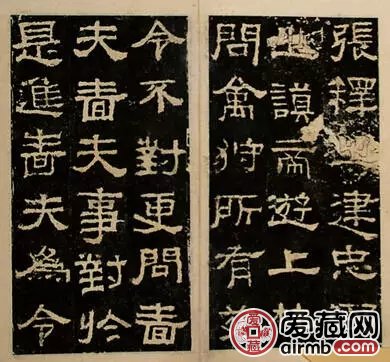 張釋建忠
謨帝遊上
問禽狩所有
令不對更問嗇
夫嗇夫事對於
是進嗇夫為令
爱藏网
airmb.com